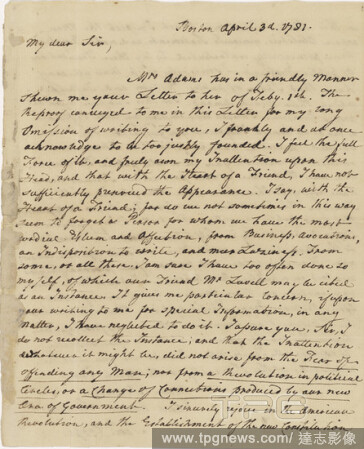 Boston April 3d. 1781.
My dear Sir,
Mrs Adams has in a friendly Manner
shewn me your Letter to her of Feby. 1st. The
Reproof conveyed to me in this Letter for my long
Omission of writing to you, I frankly and at once
acknowledge to be too justly founded. I feel the full
Force of it, and freely own my Inattention upon this
Head, and that with the Heart of a Friend, I have not
sufficiently preserved the Appearance. I say, with the
Heart of a Friend; for do we not sometimes in this way
seem to forget a Person for whom we have the most
cordial Esteem and Affection, from Business, avocations,
an Indisposition to write, and mere Laziness. From
some, or all these I am sure I have too often done so
myself, of which our Friend Mr Lovell may be cited
as an Instance. It gives me particular Concern, if upon
your writing to me for special Information, in any
matter, I have neglected to do it. I assure you, Sir, I
do not recollect the Instance; and that the Inattention
whatever it might be, did not arise from the Fear of
offending any Man; nor from a Revolution in political
Circles, or a Change of Connections produced by our new
Era of Government. I sincerely rejoice in the American
Revolution, and the Establishment of the new Constitution
www.tpgnews.com / 達志影像